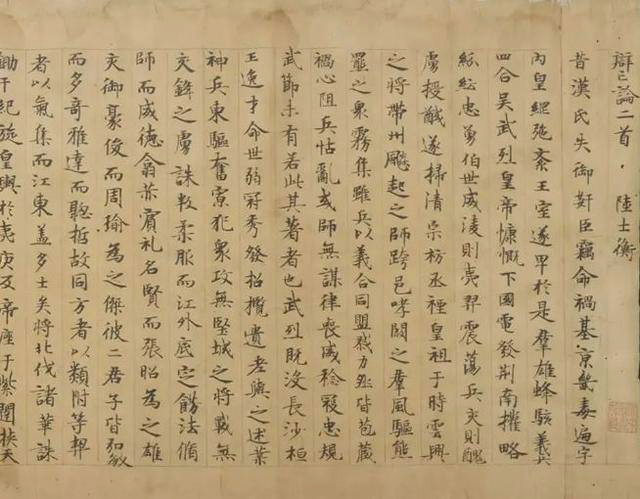 辯亡論二首 陸士衡
昔漢氏失御奸臣竊命禍基京畿毒遍宇
內皇綱弛紊王室遂卑於是羣雄蜂駭義兵
四合吳武烈皇帝慷慨下國電發荊南權略
紛紜忠勇伯世威淩則夷羿震蕩兵交則醜
虜授馘遂掃清宗祊烝禋皇祖于時雲興
之將帶州飈起之師跨邑哮闞之羣風驅熊
羆之衆霧集雖兵以義合同盟戮力然皆苞藏
禍心阻兵怙亂或師無謀律喪威稔寇忠規
武節未有若此其著者也武烈既沒長沙桓
王逸才命世弱冠秀發招攬遺老與之述業
神兵東驅奮寡犯衆攻無堅城之將戰無
交鋒之虜誅叛柔服而江外底定飭法脩
師而威德翕赫賓礼名賢而張昭為之雄
交御豪俊而周瑜為之傑彼二君子皆弘敏
而多奇雅達而聰哲故同方者以類附等契
者以氣集而江東蓋多士矣將北伐諸華誅
鋤干紀旋皇輿於夷庚反帝座于紫闥挾天